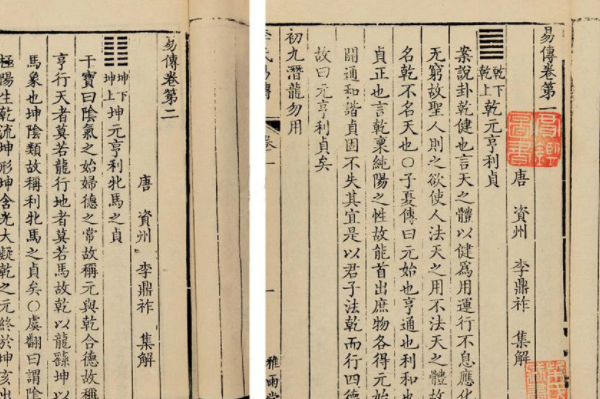 易傳卷第一
唐 資州 李鼎祚 集解
䷀ 乾下 乾上 乾元亨利貞
案說卦乾健也言天之體以健爲用運行不息應化
无窮故聖人則之欲使人法天之用不法天之體故
名乾不名天也〇子夏傳曰元始也亨通也利和也
貞正也言乾稟純陽之性故能首出庶物各得元始
開通和諧貞固不失其宜是以君子法乾而行四德
故曰元亨利貞矣
初九潛龍勿用
李氏易傳 卷一 雅雨堂
易傳卷第二
唐 資州 李鼎祚 集解
䷁ 坤下 坤上 坤元亨利牝馬之貞
干寶曰陰氣之始婦德之常故稱元與乾合德故稱
亨行天者莫若龍行地者莫若馬故乾以龍繇坤以
馬象也坤陰類故稱利牝馬之貞矣〇虞翻曰謂陰
極陽生乾流坤形坤含光大凝乾之元終於坤亥出